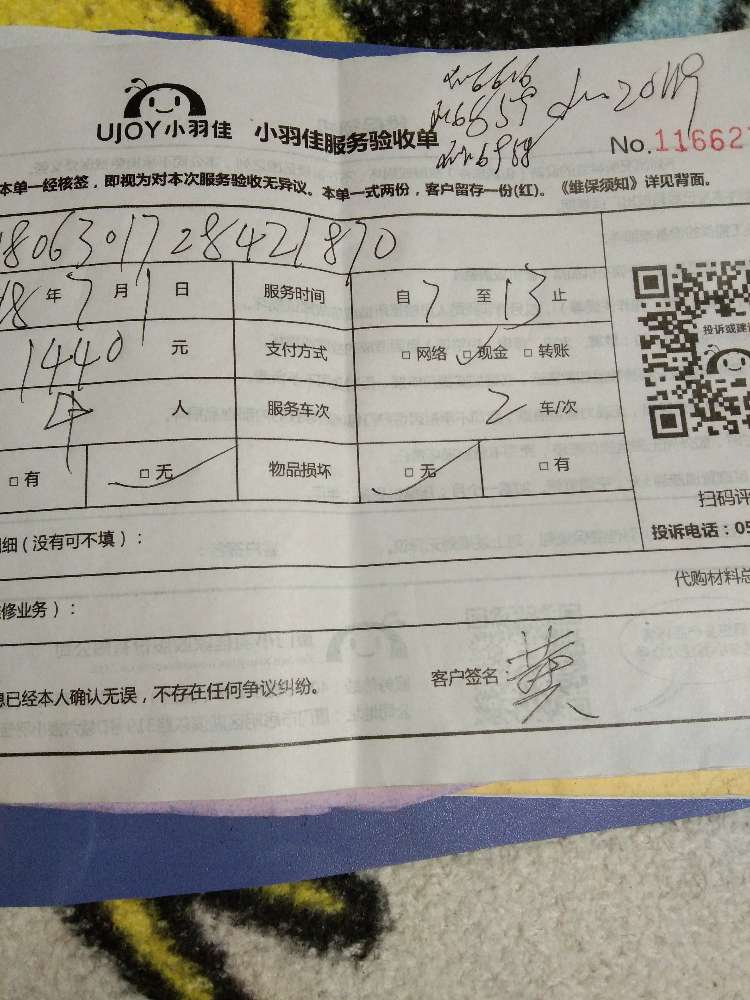 UJOY小羽佳 小羽佳服务验收单
6616
6659
20119
6988
No.11662
本单一经核签，即视为对本次服务验收无异议。本单一式两份，客户留存一份(红)。《维保须知》详见背面。
1806301728421870
18年7月1日 服务时间 自7至13止
1440元 支付方式 □网络 □现金 □转账
4人 服务车次 2车/次
□有 □无 物品损坏 □无 □有
投诉或建
扫码评
细(没有可不填)：
投诉电话：05
代购材料总
修业务)：
息已经本人确认无误，不存在任何争议纠纷。 客户签名：黄